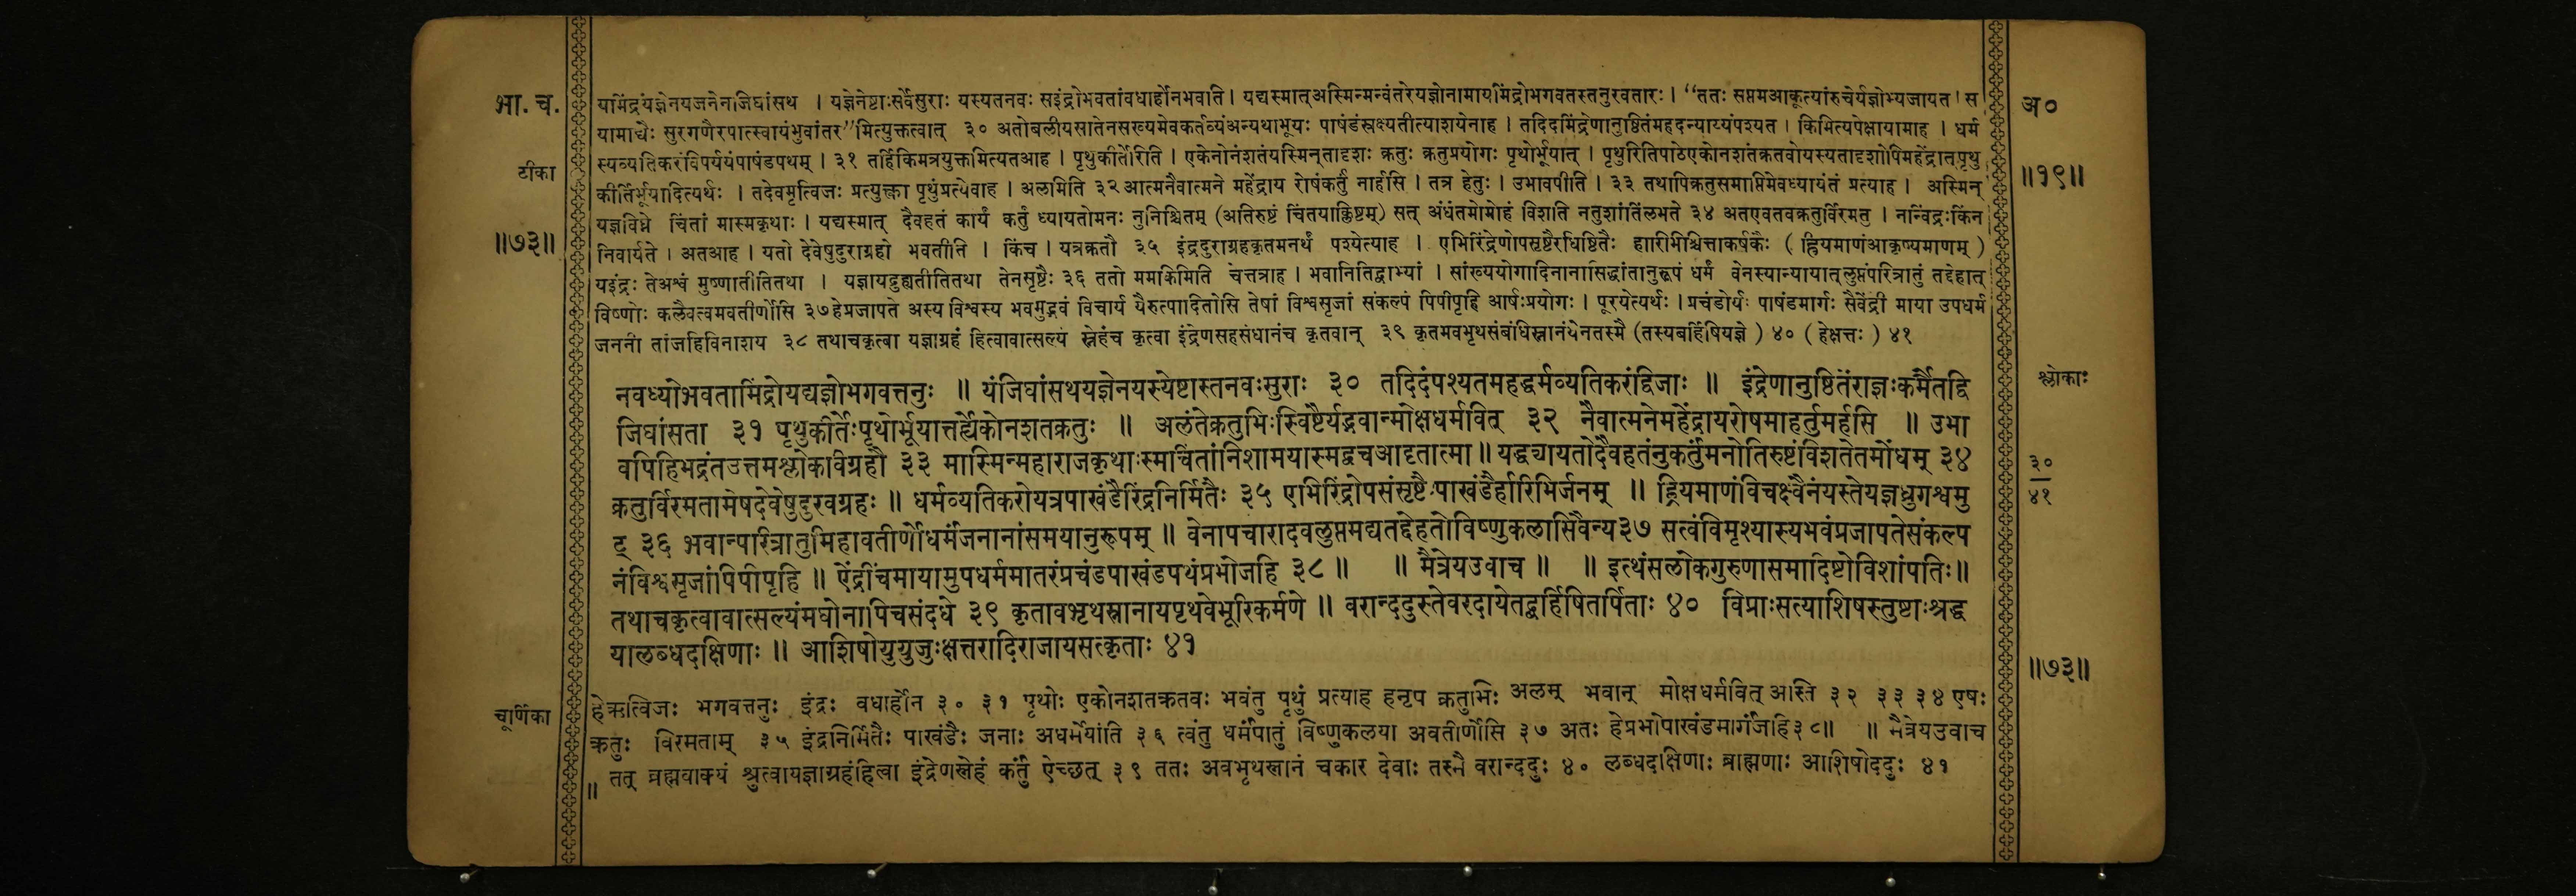 भा. च.
यामेंद्रंयज्ञेनयजनेनजिघांसथ । यज्ञेनेष्टाःसर्वेसुराः यस्यतनवः सइंद्रोभवतांवधार्होनभवति । यद्यस्मात्अस्मिन्मन्वंतरेयज्ञोनामायमिंद्रोभगवतस्तनुरवतारः । “ततः सप्तमआकूत्यांरुचेर्यज्ञोभ्यजायत । स
अ०
यामाद्यैः सुरगणैरपात्स्वायंभुवांतर”मित्युक्तत्वात् ३० अतोबलीयसातेनसख्यमेवकर्तव्यंअन्यथाभूयः पाषंडंस्रक्ष्यतीत्याशयेनाह । तदिदमिंद्रेणानुष्ठितंमहदन्याय्यंपश्यत । किमित्यपेक्षायामाह । धर्म
टीका
स्यव्यतिकरंविपर्ययंपाषंडपथम् । ३१ तर्हिकिमत्रयुक्तमित्यतआह । पृथुकीर्तेरिति । एकेनोनंशतंयस्मिन्तादृशः क्रतुः क्रतुप्रयोगः पृथोर्भूयात् । पृथुरितिपाठेएकोनशतंक्रतवोयस्यतादृशोपिमहेंद्रात्पृथु
॥१९॥
कीर्तिर्भूयादित्यर्थः । तदेवमृत्विजः प्रत्युक्त्वा पृथुंप्रत्येवाह । अलमिति ३२ आत्मनैवात्मने महेंद्राय रोषंकर्तुं नार्हसि । तत्र हेतुः । उभावपीति । ३३ तथापिक्रतुसमाप्तिमेवध्यायंतं प्रत्याह । अस्मिन्
यज्ञविघ्ने चिंतां मास्मकृथाः । यद्यस्मात् दैवहतं कार्यं कर्तुं ध्यायतोमनः नुनिश्चितम् (अतिरुष्टं चिंतयाक्लिष्टम्) सत् अंधंतमोमोहं विशति नतुशांतिंलभते ३४ अतएवतवक्रतुर्विरमतु । नन्विंद्रःकिंन
॥७३॥
निवार्यते । अतआह । यतो देवेषुदुराग्रहो भवतीति । किंच । यत्रक्रतौ ३५ इंद्रदुराग्रहकृतमनर्थं पश्येत्याह । एभिरिंद्रेणोपसृष्टैरधिष्ठितैः हारिभिश्चित्ताकर्षकैः ( ह्रियमाणंआकृष्यमाणम् )
यइंद्रः तेअश्वं मुष्णातीतितथा । यज्ञायद्रुह्यतीतितथा तेनसृष्टैः ३६ ततो ममकिमिति चेत्तत्राह । भवानितिद्वाभ्यां । सांख्ययोगादिनानासिद्धांतानुरूपं धर्मं वेनस्यान्यायात्लुप्तंपरित्रातुं तद्देहात्
विष्णोः कलैवत्वमवतीर्णोसि ३७हेप्रजापते अस्य विश्वस्य भवमुद्भवं विचार्य यैरुत्पादितोसि तेषां विश्वसृजां संकल्पं पिपीपृहि आर्षःप्रयोगः । पूरयेत्यर्थः । प्रचंडोर्यः पाषंडमार्गः सैवेंद्री माया उपधर्म
जननी तांजहिविनाशय ३८ तथाचकृत्वा यज्ञाग्रहं हित्वावात्सल्यं स्नेहंच कृत्वा इंद्रेणसहसंधानंच कृतवान् ३९ कृतमवभृथसंबंधिस्नानंयेनतस्मै (तस्यबर्हिषियज्ञे ) ४० ( हेक्षत्तः ) ४१
नवध्योभवतामिंद्रोयद्यज्ञोभगवत्तनुः ॥ यंजिघांसथयज्ञेनयस्येष्टास्तनवःसुराः ३० तदिदंपश्यतमहद्धर्मव्यतिकरंद्विजाः ॥ इंद्रेणानुष्ठितंराज्ञःकर्मैतद्वि
श्लोकाः
जिघांसता ३१ पृथुकीर्तेःपृथोर्भूयात्तर्ह्येकोनशतक्रतुः ॥ अलंतेक्रतुभिःस्विष्टैर्यद्भवान्मोक्षधर्मवित् ३२ नैवात्मनेमहेंद्रायरोषमाहर्तुमर्हसि ॥ उभा
वपिहिभद्रंतउत्तमश्लोकविग्रहौ ३३ मास्मिन्महाराजकृथाःस्मचिंतांनिशामयास्मद्वचआदृतात्मा ॥ यद्ध्यायतोदैवहतंनुकर्तुंमनोतिरुष्टंविशतेतमोंधम् ३४
३०
क्रतुर्विरमतामेषदेवेषुदुरवग्रहः ॥ धर्मव्यतिकरोयत्रपाखंडैरिंद्रनिर्मितैः ३५ एभिरिंद्रोपसंसृष्टैःपाखंडैर्हारिभिर्जनम् ॥ ह्रियमाणंविचक्ष्वैनंयस्तेयज्ञध्रुगश्वमु
४१
ट् ३६ भवान्परित्रातुमिहावतीर्णोधर्मंजनानांसमयानुरूपम् ॥ वेनापचारादवलुप्तमद्यतद्देहतोविष्णुकलासिवैन्य३७ सत्वंविमृश्यास्यभवंप्रजापतेसंकल्प
नंविश्वसृजांपिपीपृहि ॥ ऐंद्रींचमायामुपधर्ममातरंप्रचंडपाखंडपथंप्रभोजहि ३८ ॥ ॥ मैत्रेयउवाच ॥ ॥ इत्थंसलोकगुरुणासमादिष्टोविशांपतिः॥
तथाचकृत्वावात्सल्यंमघोनापिचसंदधे ३९ कृतावभृथस्नानायपृथवेभूरिकर्मणे ॥ वरान्ददुस्तेवरदायेतद्बर्हिषितर्पिताः ४० विप्राःसत्याशिषस्तुष्टाःश्रद्ध
यालब्धदक्षिणाः ॥ आशिषोयुयुजुःक्षत्तरादिराजायसत्कृताः ४१
॥७३॥
चूर्णिका
हेऋत्विजः भगवत्तनुः इंद्रः वधार्होन ३० ३१ पृथोः एकोनशतक्रतवः भवंतु पृथुं प्रत्याह हेनृप क्रतुभिः अलम् भवान् मोक्षधर्मवित् अस्ति ३२ ३३ ३४ एषः
क्रतुः विरमताम् ३५ इंद्रनिर्मितैः पाखंडैः जनाः अधर्मेयांति ३६ त्वंतु धर्मंपातुं विष्णुकलया अवतीर्णोसि ३७ अतः हेप्रभोपाखंडमार्गंजहि३८॥ ॥ मैत्रेयउवाच
॥ तत् ब्रह्मवाक्यं श्रुत्वायज्ञाग्रहंहित्वा इंद्रेणस्नेहं कर्तुं ऐच्छत् ३९ ततः अवभृथस्नानं चकार देवाः तस्मै वरान्ददुः ४० लब्धदक्षिणाः ब्राह्मणाः आशिषोददुः ४१